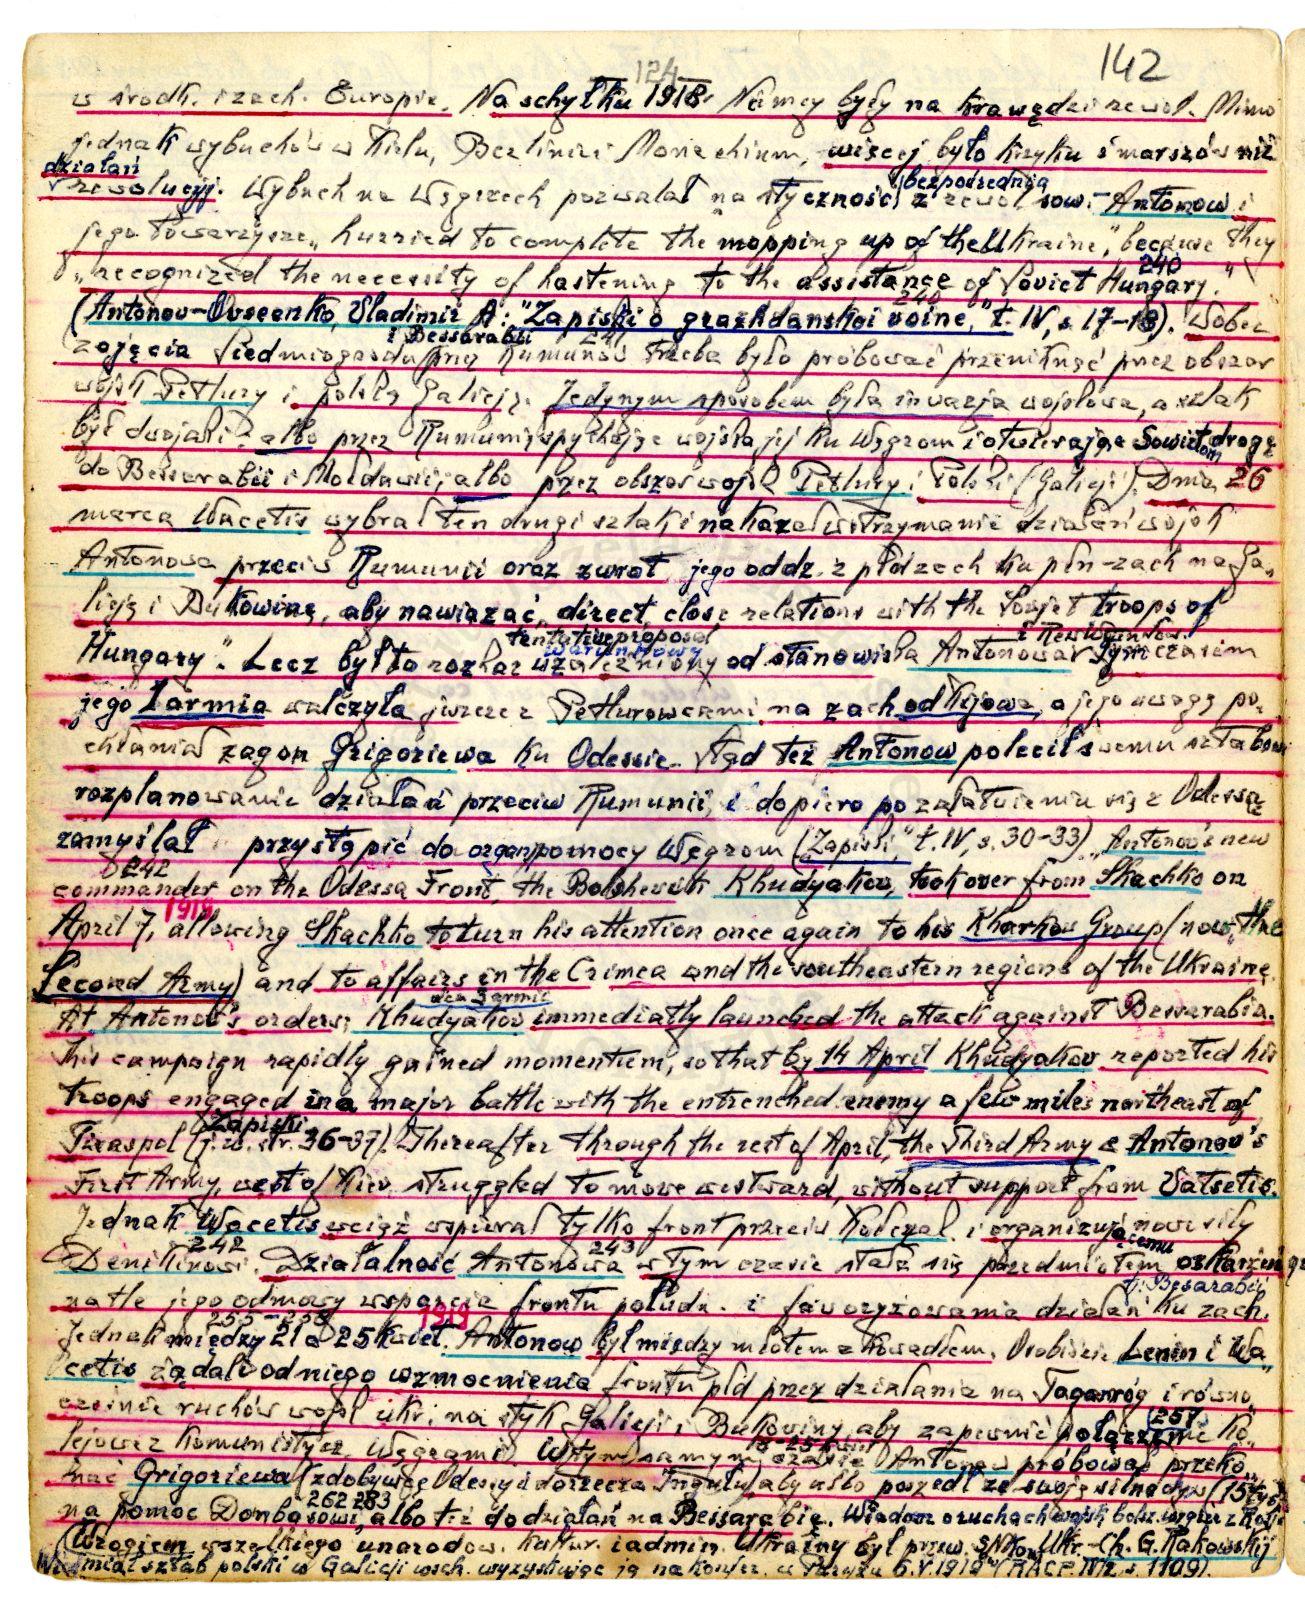 142
124
w środk. i zach. Europie. Na schyłku 1918 Niemcy były na krawędzi rewol. Mimo
jednak wybuchów w Kielu, Berlinie i Monachium, więcej było krzyku i marszów niż
działań
rewolucyj. Wybuch na Węgrzech pozwalał na styczność bezpośrednią z rewol. sow. - Antonow i
jego towarzysze „hurried to complete the mopping up of the Ukraine", because they
„recognized the necessity of hastening to the assistance of Soviet Hungary." 240
(Antonov-Ovseenko, Vladimir A: "Zapiski o grazhdanskoi voine," t. IV, s. 17-18). Wobec
240
i Bessarabii 241
zajęcia Siedmiogrodu przez Rumunów trzeba było próbować przeniknąć przez obszar
wojsk Petlury i polską Galicję. Jedynym sposobem była inwazja wojskowa, a szlak
był dwojaki - albo przez Rumunię, spychając wojska jej ku Węgrom i otwierając Sowietom drogę
do Bessarabii i Mołdawii, albo przez obszar wojsk Petlury i Polski (Galicji). Dnia 26
marca Wacetis wybrał ten drugi szlak i nakazał wstrzymanie działań wojsk
Antonowa przeciw Rumunii oraz zwrot jego oddz. z płd zach ku płn-zach na Ga-
licję i Bukowinę, aby nawiązać „direct, close relations with the Soviet troops of
tentative proposal i Rew
Hungary". Lecz był to rozkaz warunkowy uzależniony od stanowiska Antonowa. Tymczasem
jego I armia walczyła jeszcze z Petlurowcami na zach od Kijowa, a jego uwagę po-
chłaniał zagon Grigoriewa ku Odessie. Stąd też Antonow polecił swemu sztabowi
rozplanowanie działań przeciw Rumunii, i dopiero po załatwieniu się z Odessą
zamyślał przystąpić do organ. pomocy Węgrom („Zapiski," t. IV, s. 30-33) „Antonov's new
242
commander on the Odessa Front, the Bolshevik Khudyakov, took over from Skachko on
April 7, 1919 allowing Skachko to turn his attention once again to his Kharkov Group (now „the
Second Army) and to affairs in the Crimea and the southeastern regions of the Ukraine.
At Antonov's orders, Khudyakov immediatly launched the attack against Bessarabia.
This campaign rapidly gained momentum, so that by 14 April Khudyakov reported his
troops engaged in a major battle with the entrenched enemy a few miles northeast of
Zapiski
Tiraspol (j. w. str. 36-37). Thereafter through the rest of April, the Third Army & Antonov's
First Army, west of Kiev, struggled to move westward, without support from Vatsetis.
Jednak Wacetis wciąż wspierał tylko front przeciw Kołczak. i organizującemu nowe siły
242 243
Denikinowi. Działalność Antonowa w tym czasie stała się przedmiotem oskarżeń
t. Besarabii
na tle jego odmowy wsparcia frontu połudn. i faworyzowania działań ku zach.
255-258 1919
Jednak między 21 a 25 kwiet. Antonow był między młotem a kowadłem. Orobiście Lenin i Wa-
cetis żądali od niego wzmocnienia frontu płd przez działania na Taganróg i równo-
cześnie ruchów wojsk ukr. na styk Galicji i Bukowiny aby zapewnić połączenie ko-
257
lejowe z komunistycz. Węgrami. W tym samym czasie Antonow próbował przeko-
18-25 kwiet
nać Grigoriewa (zdobywcę Odessy i dorzecza Ingułu) aby albo poszedł ze swoją silną dyw (15 tys.
262 283
na pomoc Donbasowi, albo też do działań na Bessarabię. Wiadom. o ruchach wojsk bolsz.
(Wrogiem wszelkiego unarodow. kultur. i admin. Ukrainy był przew. SNKom Ukr - Ch. G. Rakowskij
miał sztab polski w Galicji wsch. wyzyskując ją na konfer. w Paryżu 6.V.1919 (RACP s. 1109).